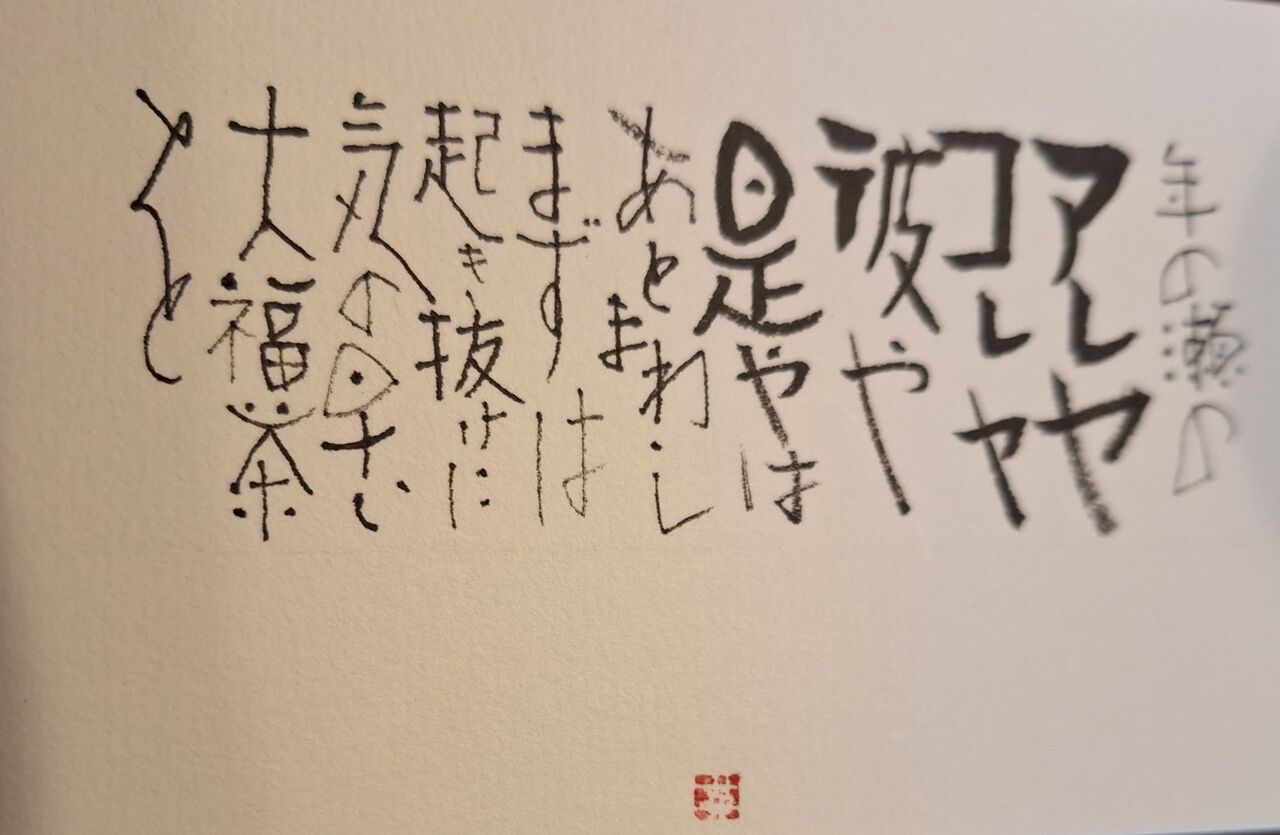 年の瀬の
アレヤ
コレヤ
彼や
是やは
あとまわし
まずは
起き抜けに
気の早い
大福茶